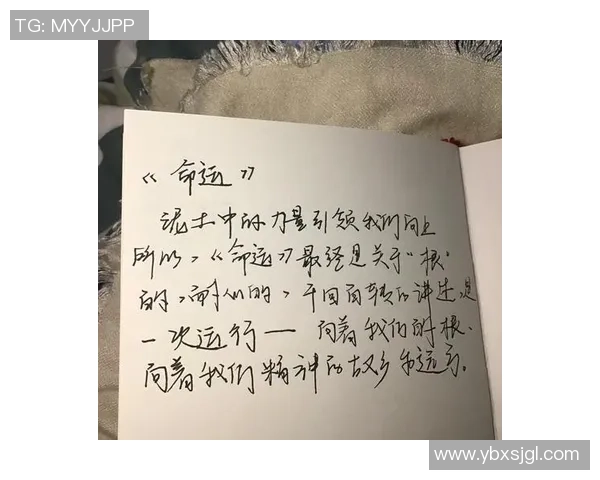 TG: MYYJJPP
《命运》
泥土中的力量引领我们向上
所以,《命运》最终是关于“根”
的,耐人的,千回百转的讲述,是
一次运行——向着我们的根、
向着我们精神的故乡和远方。
www.ybxsjgl.com